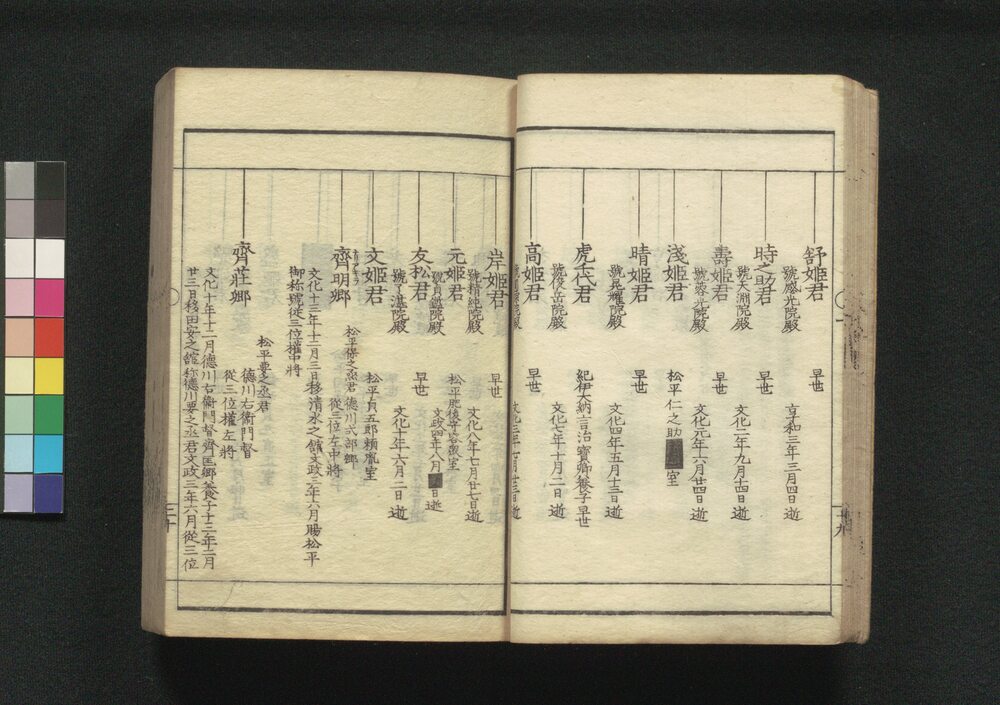 舒姫君
早世
號感光院殿
享和三年三月四日逝
時之助君
早世
號天淵院殿
文化二年九月十四日逝
壽姫君
早世
號蓉光院殿
文化元年六月廿四日逝
淺姫君
松平仁之助室
晴姫君
早世
號晃耀院殿
文化四年五月十三日逝
虎千代君
紀伊大納言治寶卿養子早世
號俊岳院殿
文化七年十月二日逝
高姫君
岸姫君
早世
號精純院殿
文化八年七月廿七日逝
元姫君
松平肥後守容衆室
號貞鑑院殿
文政四年八月 日逝
友松君
早世
號了湛院殿
文化十年六月二日逝
文姫君
松平貞五郎頼胤室
齊明郷
松平保之丞君
德川式部卿
從三位左中將
文化十三年十二月三日移清水之舘文政三年六月賜松平
御称號從三位權中將
齊莊郷
松平要之丞君
德川右衛門督
從三位權左將
文化十年十二月德川右衛門督齊匡郷養子十三年二月
廿三日移田安之舘称德川要之丞君文政三年六月從三位
三十